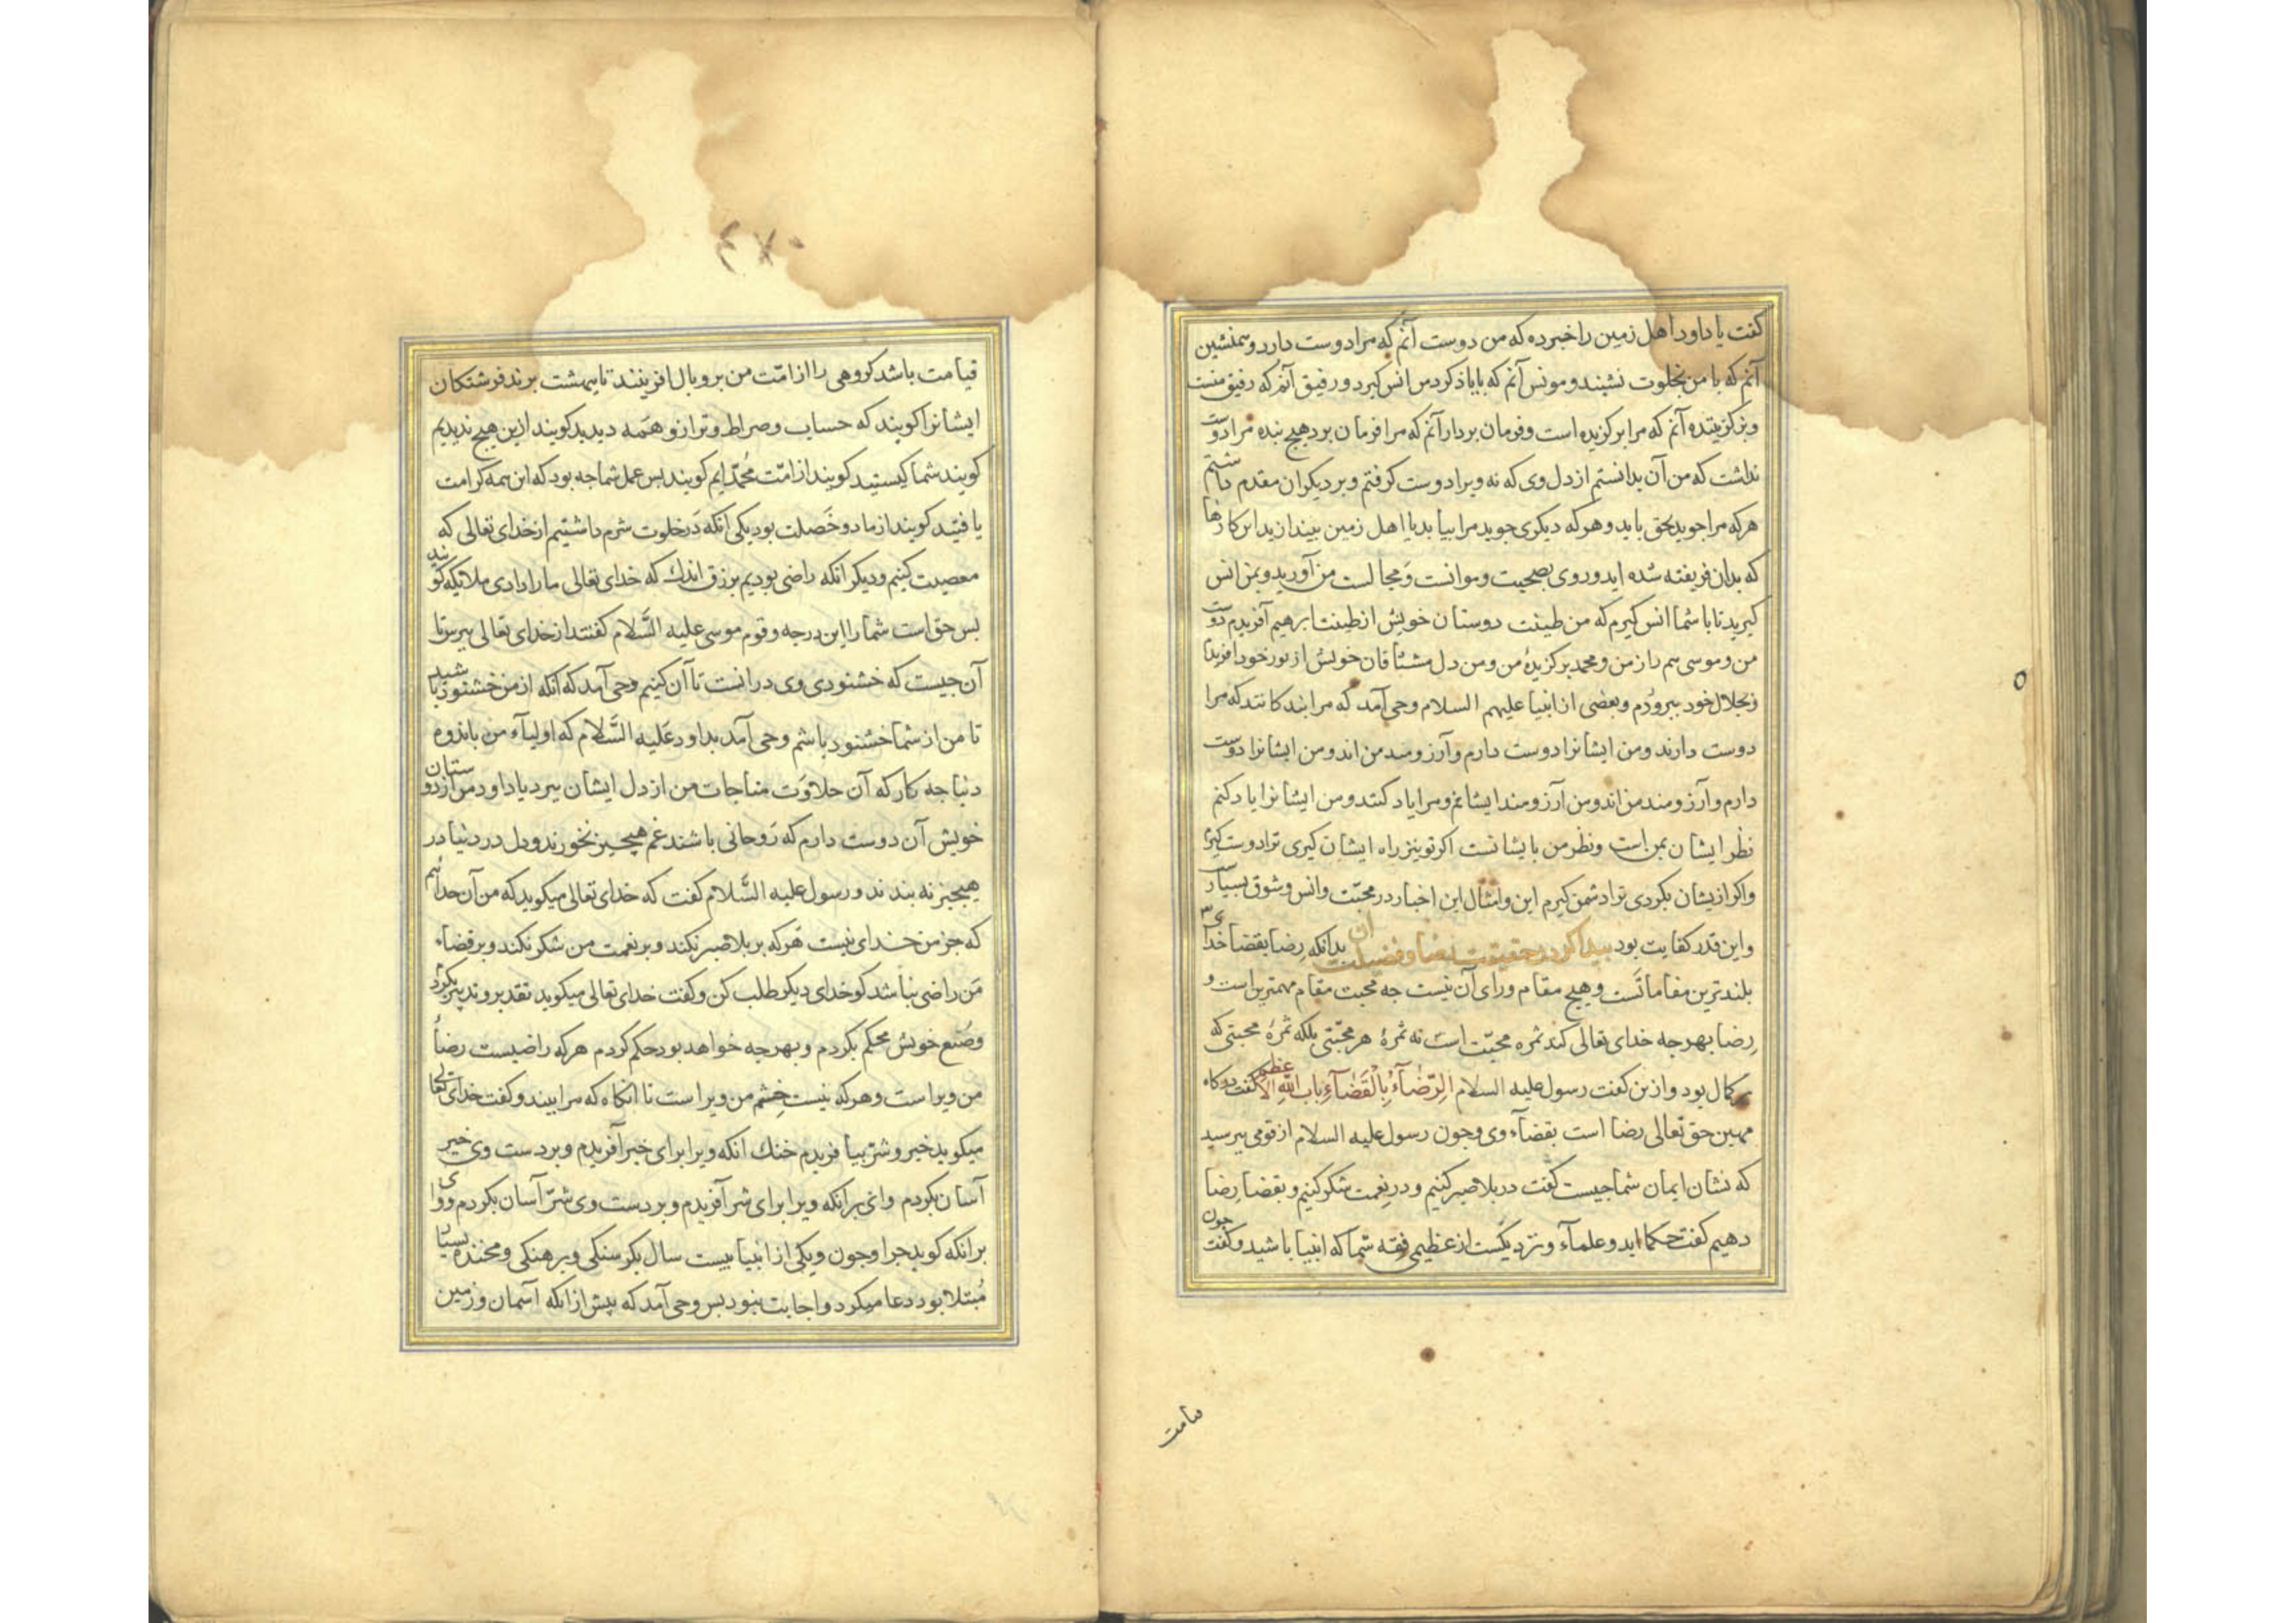 کفت یا داود اهل زمین را خبر ده که من دوست آنم که مرا دوست دارد و همنشین
آنم که با من بخلوت نشیند و مونس آنم که با یاذ کرد من انس کیرد و رفیق آنم که رفیق منست
و برکزیننده آنم که مرا برکزیده است و فرمان بردار آنم که مرا فرمان برد هیچ بنده مرا دوست
نداشت که من آن بدانستم از دل وی که نه ویرا دوست کرفتم و بر دیکران مقدم داشتم
هرکه مرا جوید بحق بابد و هرکه دیکری جوید مرا نیابد یا اهل زمین بیندازید این کارها
که بدان فریفته شده اید و روی بصحبت و موانست و مجالست من آورید و بمن انس
کیرید تا با شما انس کیرم که من طینت دوستان خویش از طینت ابرهیم آفریدم دوست
من و موسی هم راز من و محمد برکزیدۀ من و من دل مشتاقان خویش از نور خود افریدم
و بجلال خود بپروردم و بعضی از انبیا علیهم السلام وحی آمد که مرا بندکانند که مرا
دوست دارند و من ایشانرا دوست دارم و آرزومند من اند و من ایشانرا دوست
دارم و آرزومند من اند و من آرزومند ایشانم و مرا یاد کنند و من ایشانرا یاد کنم
نظر ایشان بمن است و نظر من با یشانست اکر تو نیز راه ایشان کیری ترا دوست کیرم
و اکر از یشان بکردی ترا دشمن کیرم این و امثال این اخبار در محبّت و انس و شوق بسیارست
و این قدر کفایت بود پیدا کردن حقیقت رضا و فضیلت آن بدانکه رِضا بقضا خدای
بلند ترین مقاماتست و هیچ مقام ورای آن نیست جه محبت مقام مهمترین است و
رِضا بهرجه خدای تعالی کند ثمره محبّت است نه ثمرۀ هر محبّتی بلکه ثمرۀ محبتی که
بر کمال بود و از ین کفت رسول علیه السلام اَلرّضَآءُ بِالْقَضَآءِ بابُ اللّٰهِ الاعظم کفت درکاه
مهین حق تعالی رضا است بقضآء وی و جون رسول علیه السلام از قومی بپرسید
که نشان ایمان شما جیست کفت در بلا صبر کنیم و در نِعمت شکر کنیم و بقضا رِضا
دهیم کفت حکما اید و علمآء و نزدیکست از عظیمی فقه شما که انبیا باشید و کفت جون
قیامت
قیامت باشد کروهی را از امّت من بر و بال افرینند تا ببهشت برند فرشتکان
ایشانرا کویند که حساب و صراط و ترازو همَه دیدید کویند ازین هیچ ندیدیم
کویند شما کیستید کویند از امّت مُحمّد ایم کویند بس عمل شما جه بود که این همه کرامت
یافتید کویند از ما دو خَصلت بود یکی انکه دَر خلوت شرم داشتیم از خدای تعالی که
معصیت کنیم و دیکر انکه راضی بودیم برزق اندک که خدای تعالی ما را دادی ملائیکه کویند
بس حق است شما را این درجه و قوم موسی علیه السَّلام کفتند از خدای تعالی ببرس تا
آن جیست که خشنودی وی در انست تا آن کنیم وحی آمد که انکه از من خشنود باشید
تا من از شما خشنود باشم وحی آمد بداود عَلیه السَّلام که اولیآء من باندوه
دنیا جه کار که آن حلاوَت مناجات من از دل ایشان ببرد یا داود من از دوستان
خویش آن دوست دارم که رَوحانی باشند غم هیچجیز نخورند و دل در دنیا در
هیجیز نه بندند و رسول علیه السَّلام کفت که خدای تعالی میکوید که من آن خدایم
که جز من خدای نیست هَرکه بر بلا صبر نکند و بر نعمت من شکر نکند و بر قضاء
مَن راضی نباشد کو خدای دیکر طلب کن و کفت خدای تعالی میکوید تقدیر و تدبیر بکردم
و صُنع خویش محکم بکردم و بهرجه خواهد بود حکم کردم هرکه راضیست رضاُ
من ویرا است و هرکه نیست خِشم من ویرا ست تا انکاه که مرا بیند و کفت خدای تعالی
میکوید خیر و شرّ بیافریدم خنک انکه ویرا برای خیر آفریدم و بر دست وی خیر
آسان بکردم و ای بر انکه ویرا برای شر آفریدم و بر دست وی شرّ آسان بکردم و وای
بر انکه کوید جرا و جون و یکی از انبیا بیست سال بکرسنکی و برهنکی و محنت بسیار
مُبتلا بود دعا میکرد و اجابت نبود بس وحی آمد که پیش از انکه آسمان و زمین